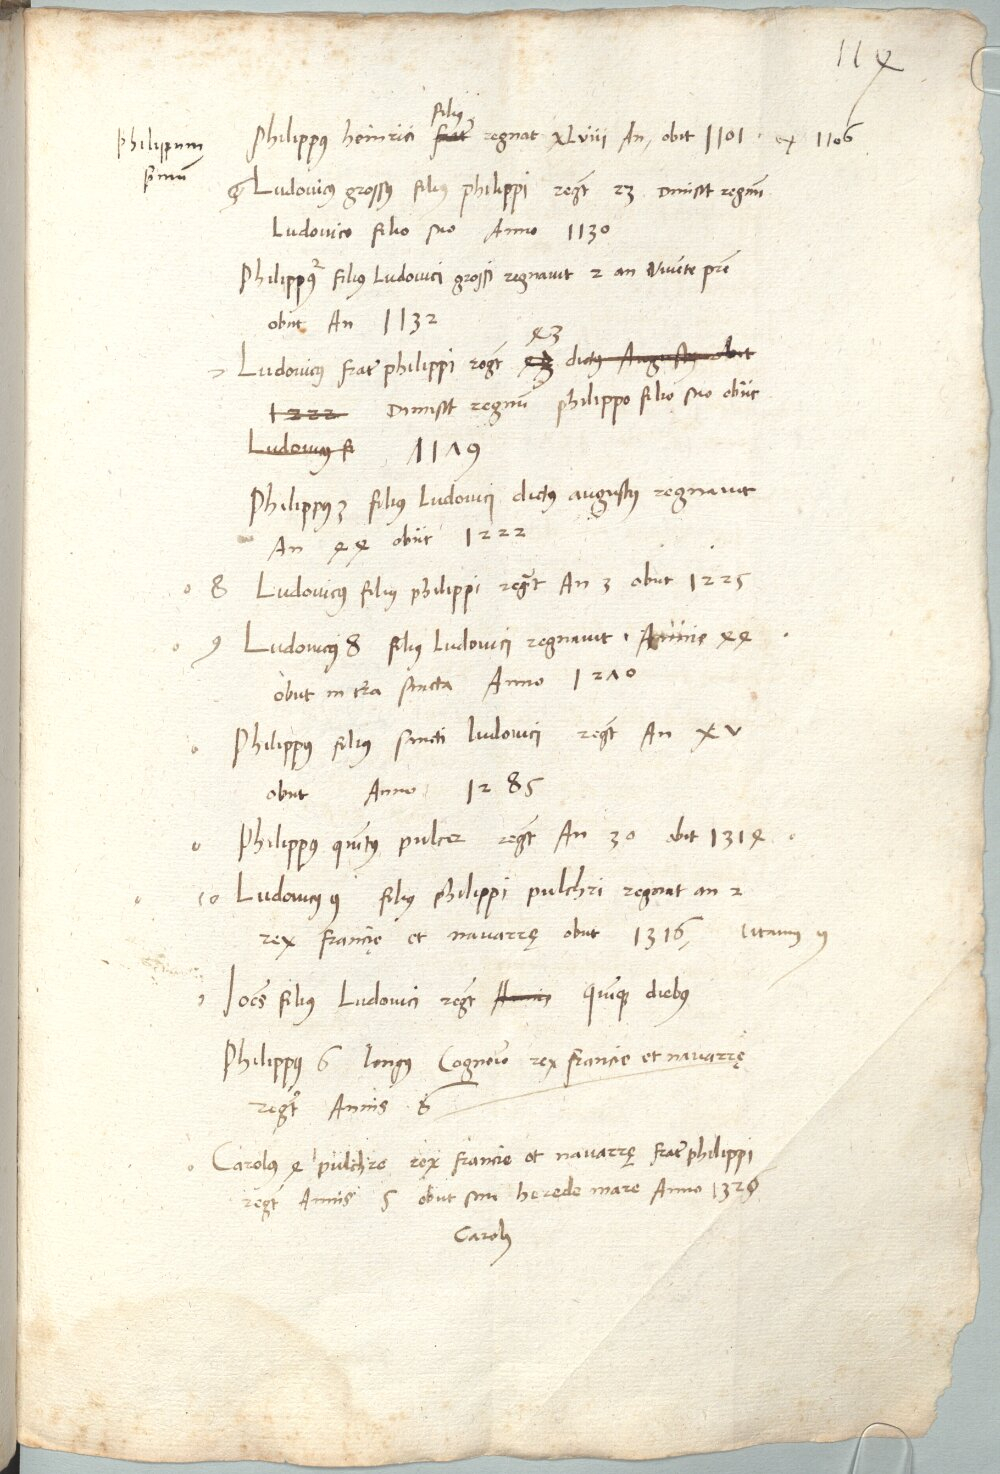 114
filius
Philippus heinrici frater regnat XLviii An, obit 1101 . et 1106
Philippum
primum
6 Ludovicus grossus filius philippi regt 23 Dimisit regnum
Ludovico filio suo Anno 1130
Philippus 2 filius Ludovici grossi regnavit 2 an vivente pre
obiit An 1132
43
7 Ludovicus frater philippi regt dictus Augustus obiit
1222 Dimisit regnum philippo filio suo obiit
Ludovicus fi 1179
Philippus 3 filius Ludovici dictus augustus regnavit
An 44 obiit 1222
8 Ludovicus filius philippi regt An 3 obiit 1225
9 Ludovicus 8 filius Ludovici regnavit Annis 44
obiit in tra sancta Anno 1270
Philippus filius sancti ludovici regt An XV
obiit Anno 1285
Philippus quintus pulcer regt An 30 obit 1314
10 Ludovicus 9 filius philippi pulchri regnat an 2
rex francię et navarrę obiit 1316, 
Joes filius Ludovici regt Annis quinque diebus
Philippus 6 longus Cognomento rex francie et navarrę
regt Annis 8
Carolus 4 pulchre rex francie et navarrę frater philippi
regt Annis 5 obiit sine herede mare Anno
Carolus